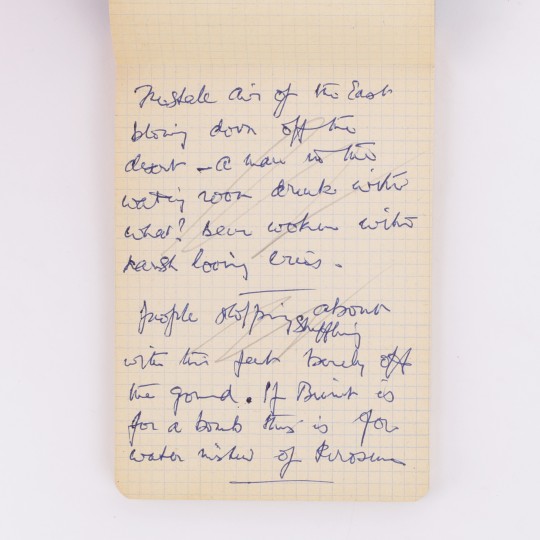 The stale air of the East
blowing down off the
desert - a man in the
waiting room drunk with
what? Been woken with
harsh lowing cries -
People slopping about
shuffling
with the feet barely off
the ground. If Beirut is
for a bomb this is for
water instead of Kerosene